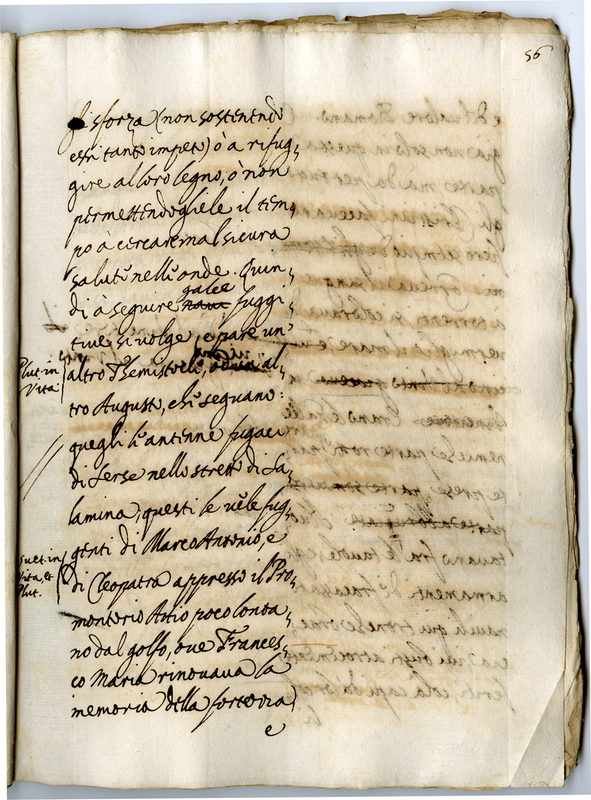 56
si sforza (non sostenendo
essi tanto impeto) ò à rifug,
gire al loro legno, ò non
permettendogliele il tem,
po à cercare mal sicura
salute nell'onde. Quin,
galee
di à seguire naui fuggi
tiue si volge, e pare un'
altro Themistocle, al,
Plut. in
Vita
tro Augusto, che seguano:
quegli l'antenne fugaci
di Serse nello stretto di Sa,
lamina; questi le uele fug,
genti di Marco Antonio, e
Suet. in
Vita, et
Plut.
di Cleopatra appresso il Pro,
montorio Attio poco lonta,
no dal golfo, oue Frances,
co Maria rinouaua la
memoria della
e